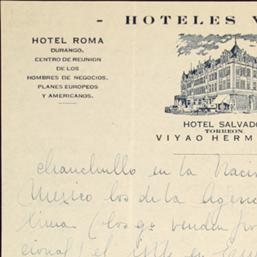 - HOTELES V
HOTEL ROMA
DURANGO.
CENTRO DE REUNION
DE LOS
HOMBRES DE NEGOCIOS.
PLANES EUROPEOS
Y AMERICANOS.
HOTEL SALVADO
TORREON.
VIYAO HERM
chanchullo en la Naci
Mexico los de la Agenc
(los q. venden
cional) el